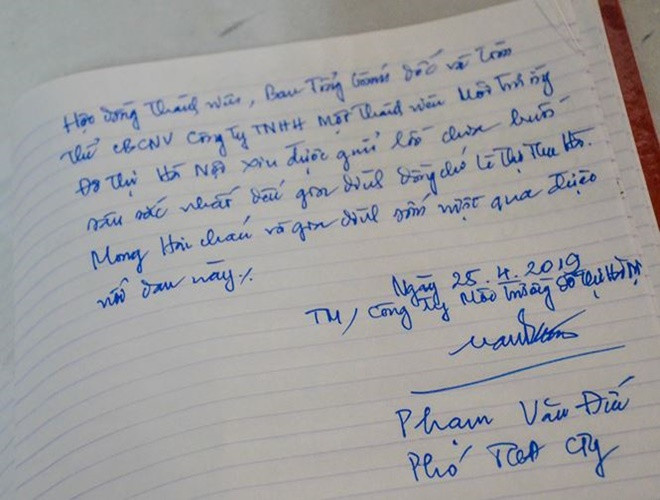 Hội đồng thành viên, Ban Tổng Giám đốc và toàn
thể CBCNV Công ty TNHH Một thành viên Môi trường
Đô thị Hà Nội xin được gửi lời chia buồn
sâu sắc nhất đến gia đình đồng chí Lê Thị Thu Hà.
Mong Hai cháu và gia đình sớm vượt qua được
nỗi đau này./.
Ngày 25.4.2019
TM/ Công ty Môi trường Đô thị Hà Nội
Phạm Văn Đức
Phó TGĐ Cty